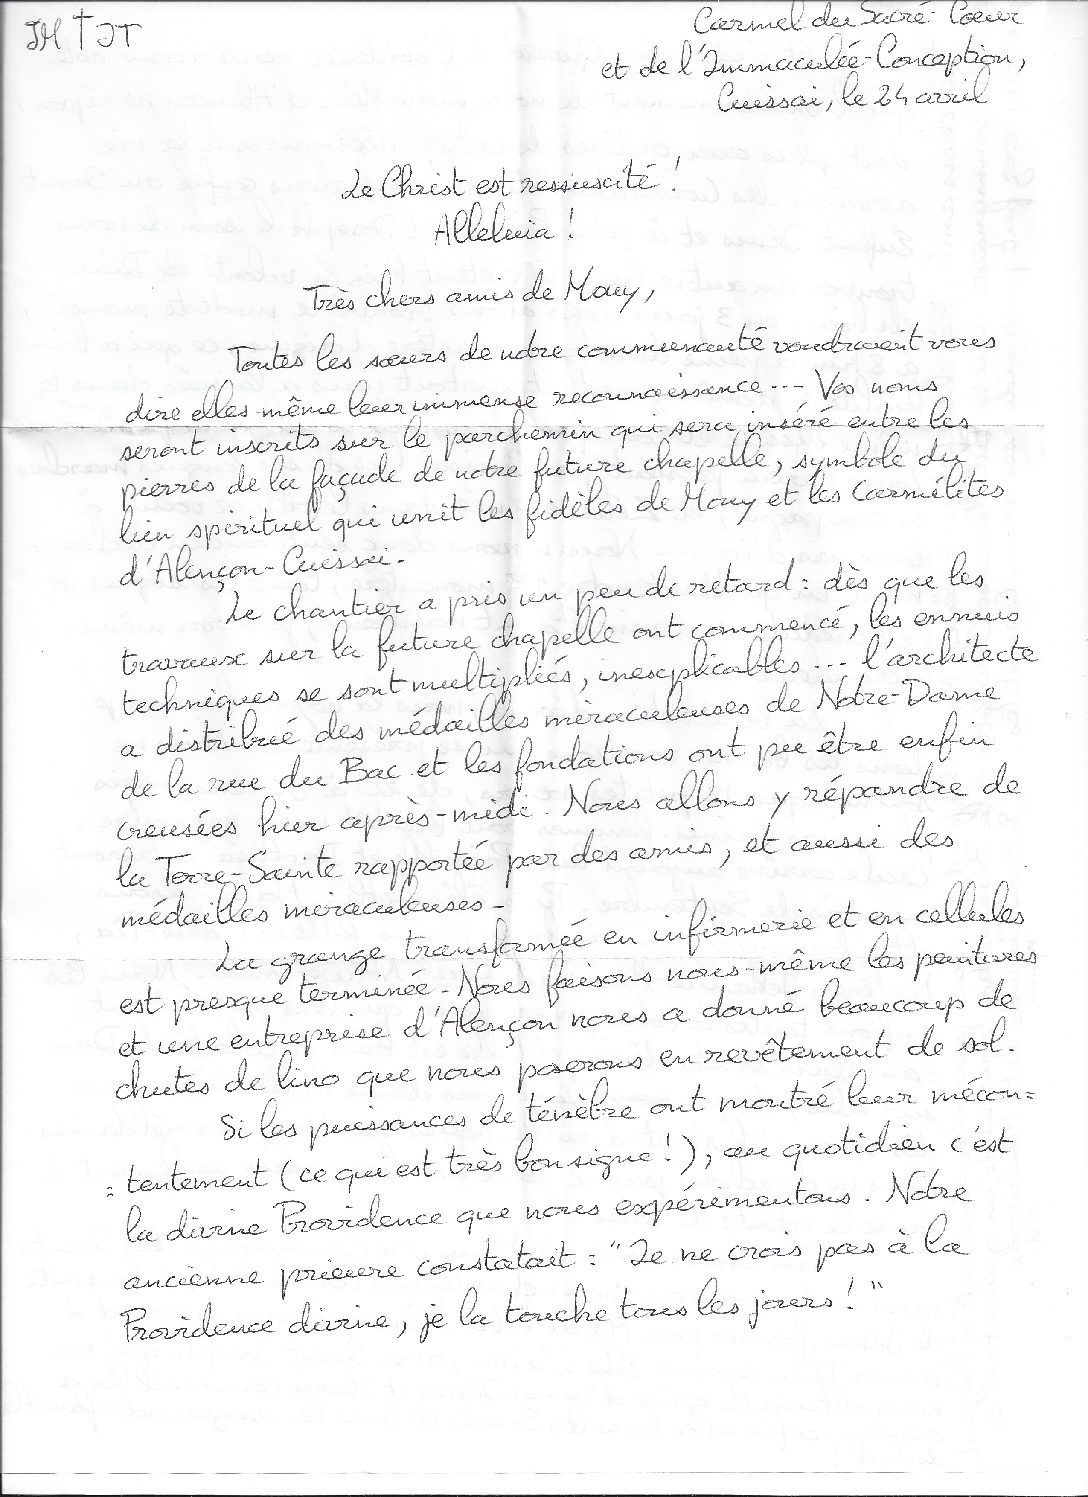 JM † JT
Carmel du Sacré-Coeur
et de l'Immaculée-Conception,
Cuissai, le 24 avril
Le Christ est ressuscité !
Alleluia !
Très chers amis de Mouy,
Toutes les sœurs de notre communauté voudraient vous
dire elles-même leur immense reconnaissance --- Vos noms
seront inscrits sur le parchemin qui sera inséré entre les
pierres de la façade de notre future chapelle, symbole du
lien spirituel qui unit les fidèles de Mouy et les Carmélites
d'Alençon-Cuissai.
Le chantier a pris un peu de retard : dès que les
travaux sur la future chapelle ont commencé, les ennuis
techniques se sont multipliés, inexplicables --- l'architecte
a distribué des médailles miraculeuses de Notre-Dame
de la rue du Bac et les fondations ont pu être enfin
creusées hier après-midi. Nous allons y répandre de
la Terre-Sainte rapportée par des amis, et aussi des
médailles miraculeuses -
La grange transformée en infirmerie et en cellules
est presque terminée - Nous faisons nous-même les peintures
et une entreprise d'Alençon nous a donné beaucoup de
chutes de lino que nous poserons en revêtement de sol.
Si les puissances de ténèbre ont montré leur mécon=
=tentement (ce qui est très bon signe !), au quotidien c'est
la divine Providence que nous expérimentons. Notre
ancienne prieure constatait : "Je ne crois pas à la
Providence divine, je la touche tous les jours ! "